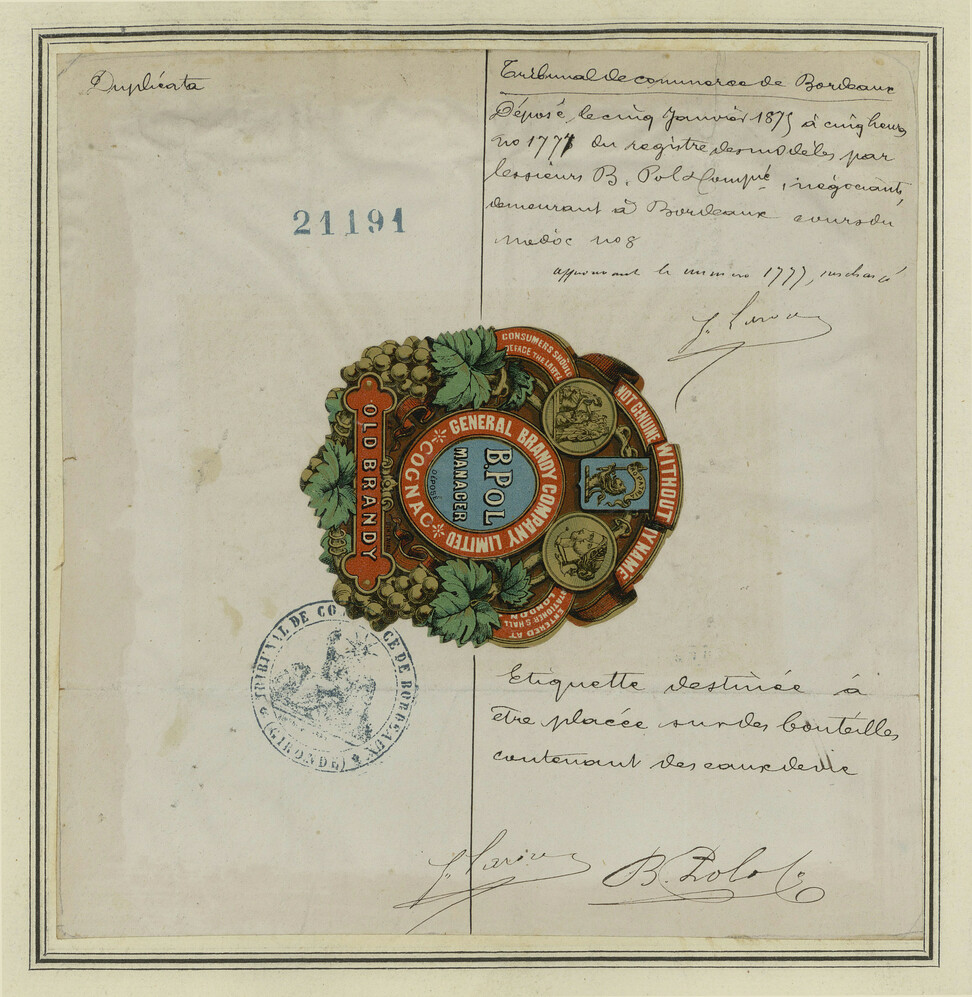 Duplicata
21191
Tribunal de commerce de Bordeaux
Déposé le cinq Janvier 1875 à cinq heures
no 1777 du registre des modèles par
les sieurs B. Pol & Compie, négociants,
demeurant à Bordeaux cours du
médoc no 8
approuvant le numero 1777, surchargé
CONSUMERS SHOULD
DEFACE THE LABEL
NOT GENUINE WITHOUT MY NAME
OLD BRANDY
GENERAL BRANDY COMPANY LIMITED
COGNAC
B. POL
MANAGER
DEPOSÉ
ENTERED AT
STATIONER'S HALL
LONDON
TRIBUNAL DE COMMERCE DE BORDEAUX
(GIRONDE)
Etiquette destinée à
être placée sur des bouteilles
contenant des eaux de vie
B. Pol & C.